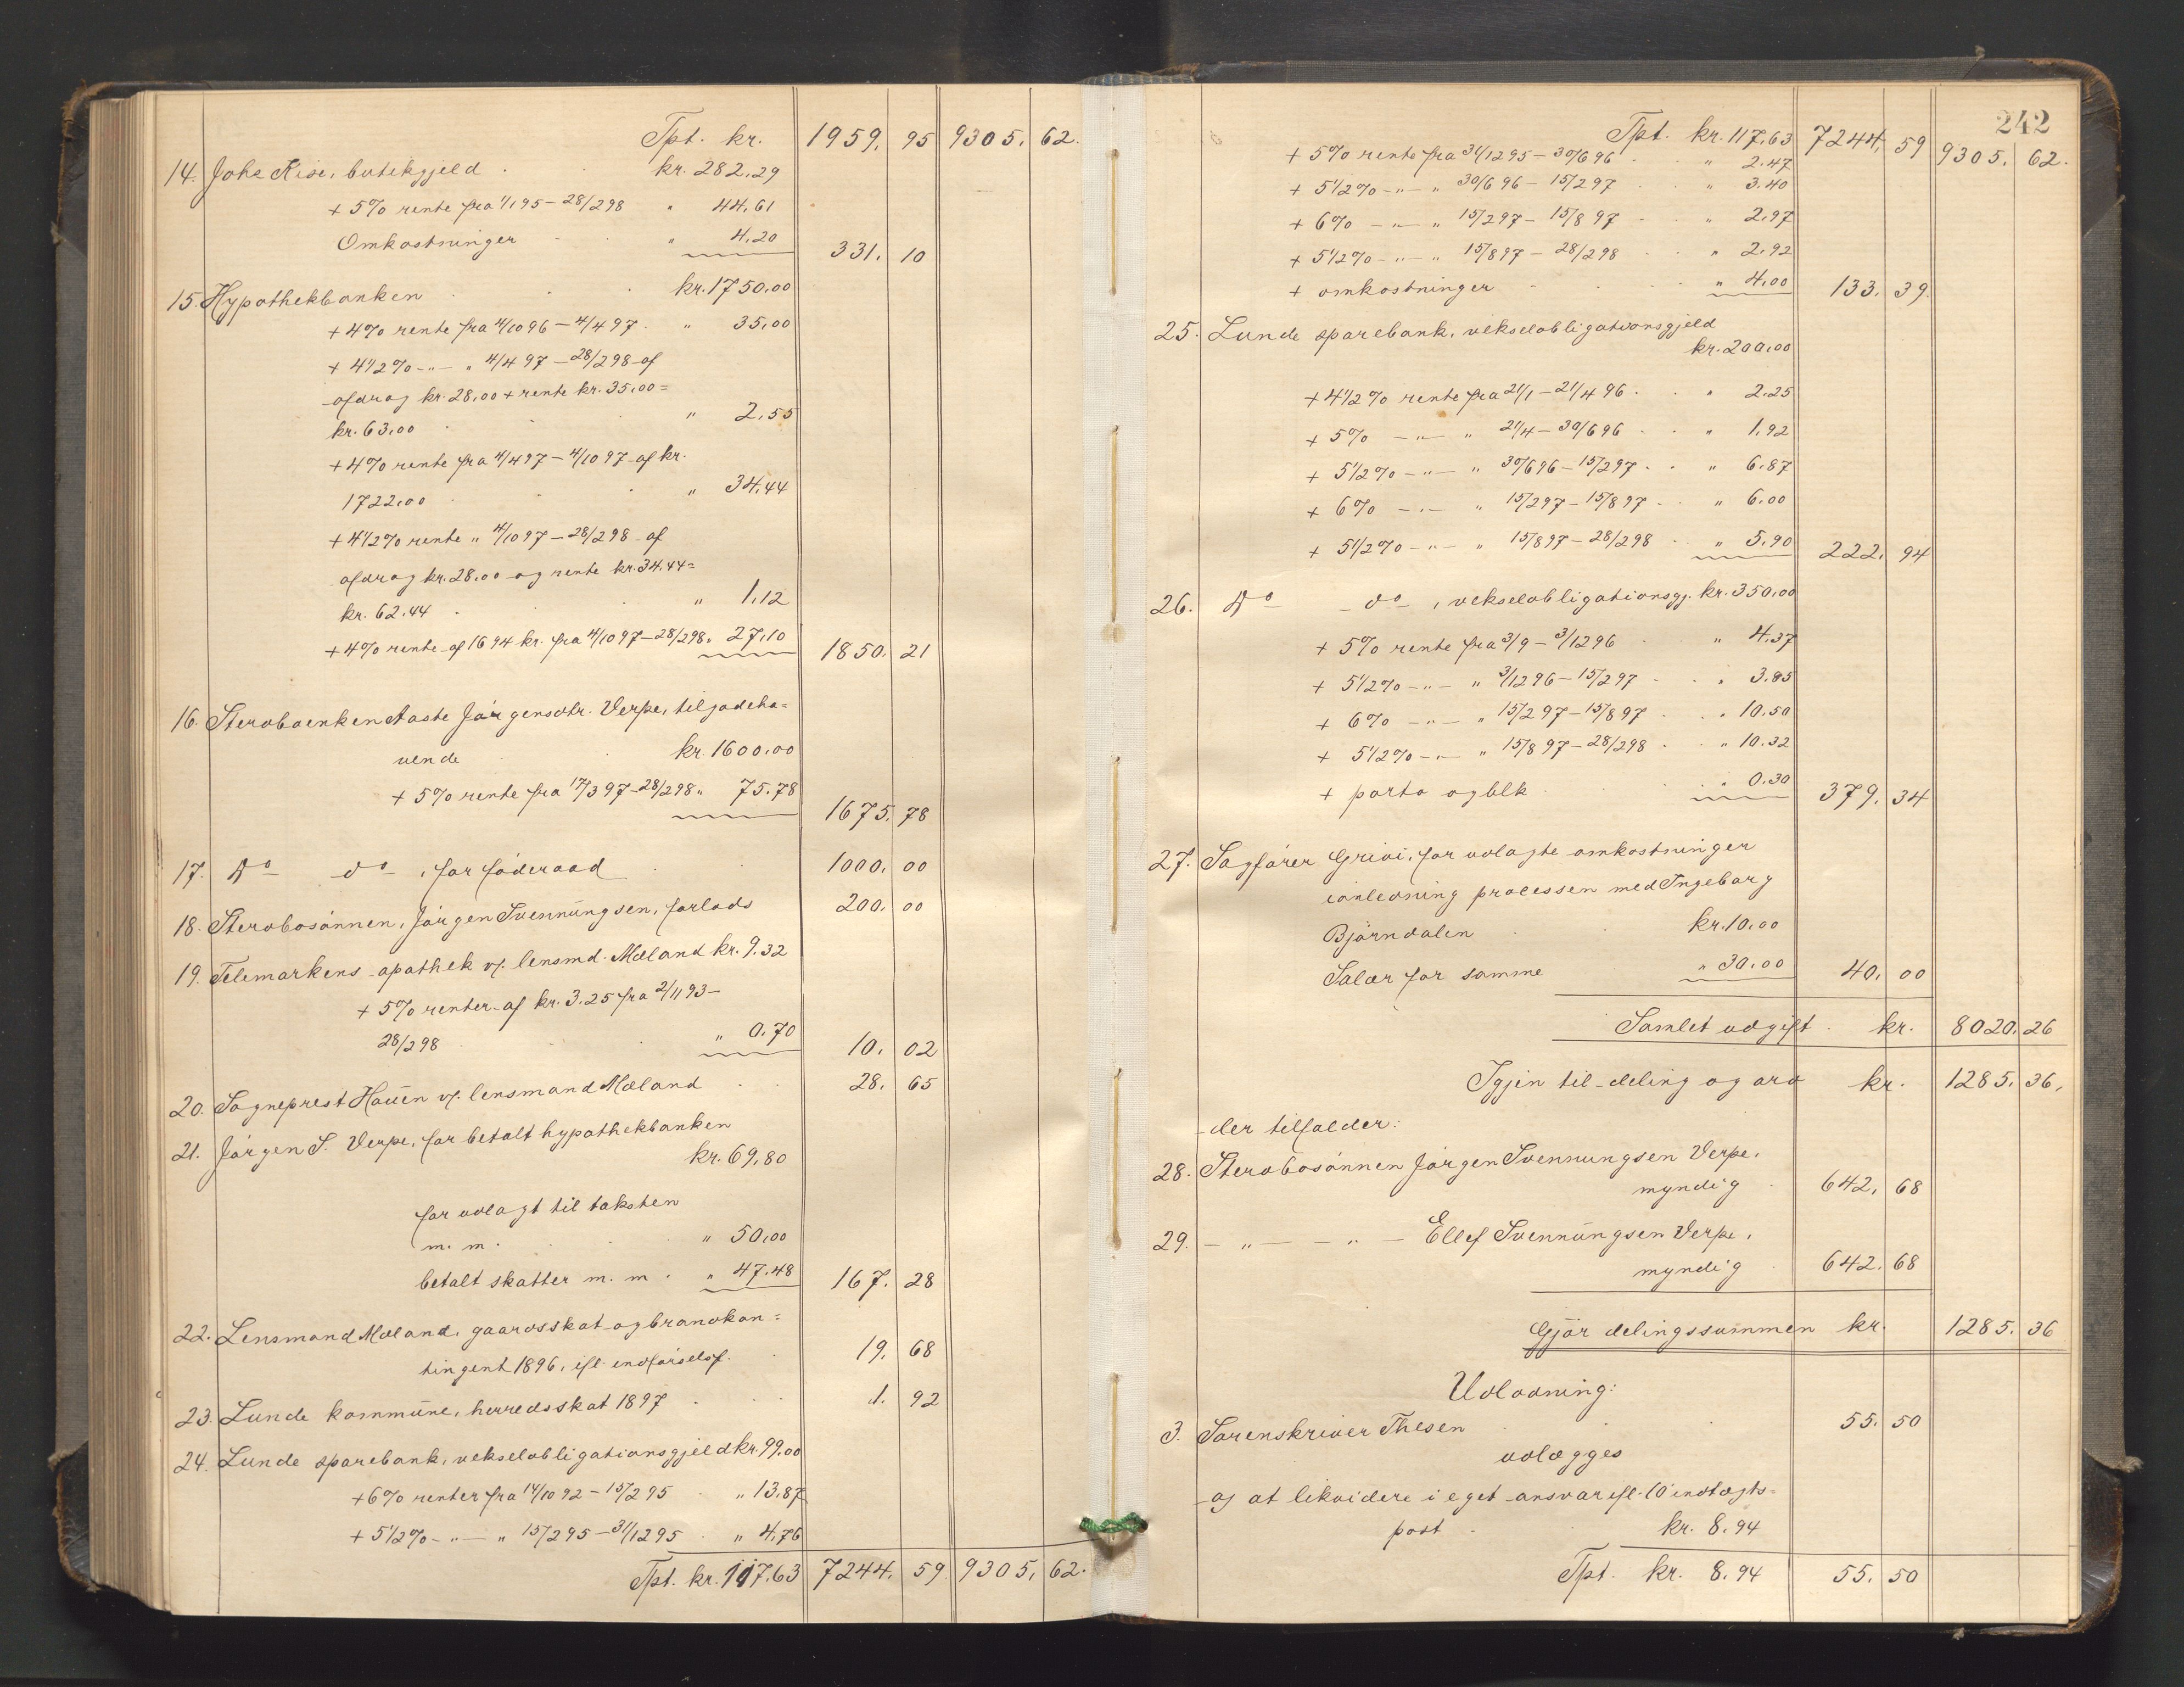 Tpt. kr. 1959. 95 9305. 62.
14. Johs Kise, butikgjeld kr. 282.29
+ 5% rente fra 1/1 95 – 28/2 98 " 44.61
Omkostninger " 4.20 331. 10
15. Hypothekbanken kr. 1750.00
+ 4% rente fra 4/10 96 – 4/4 97 " 35.00
+ 4 1/2 % – " – " 4/4 97 – 28/2 98 af
afdrag kr. 28.00 + rente kr. 35.00 =
kr. 63.00 " 2.55
+ 4% rente fra 4/4 97 – 4/10 97 af kr.
1722.00 " 34.44
+ 4 1/2 % rente " 4/10 97 – 28/2 98 af
afdrag kr. 28.00 og rente kr. 34.44 =
kr. 62.44 " 1.12
+ 4% rente af 1694 kr. fra 4/10 97 – 28/2 98 " 27.10 1850. 21
16. Stervboenken Aaste Jörgensdtr. Verpe, tilgodeha=
vende kr. 1600.00
+ 5% rente fra 17/3 97 – 28/2 98 " 75.78 1675. 78
17. Do do, for föderaad 1000. 00
18. Stervbosönnen, Jörgen Svennüngsen, forlods 200. 00
19. Telemarkens apothek v. lensmd. Mæland kr. 9.32
+ 5% renter af kr. 3.25 fra 2/11 93 –
28/2 98 " 0.70 10. 02
20. Sogneprest Hauen v. lensmand Mæland 28. 65
21. Jörgen S. Verpe, for betalt hypothekbanken
kr. 69.80
for udlagt til taksten
m. m. " 50.00
betalt skatter m. m. " 47.48 167. 28
22. Lensmand Mæland, gaardsskat og brandkon=
tingent 1896, ifl. indförselsf. 19. 68
23. Lunde kommüne, herredsskat 1897 1. 92
24. Lunde sparebank, vekselobligationsgjeld kr. 99.00
+ 6% renter fra 14/10 92 – 15/2 95 " 13.87
+ 5 1/2 % – " – " 15/2 95 – 31/12 95 " 4.76
Tpt. kr. 117.63 7244. 59. 9305. 62.
242
Tpt. kr. 117.63 7244. 59 9305. 62.
+ 5% rente fra 31/12 95 – 30/6 96 " 2.47
+ 5 1/2 % – " – " 30/6 96 – 15/2 97 " 3.40
+ 6% – " – " 15/2 97 – 15/8 97 " 2.97
+ 5 1/2 % – " – " 15/8 97 – 28/2 98 " 2.92
+ omkostninger " 4.00 133. 39.
25. Lunde sparebank, vekselobligationsgjeld
kr. 200.00
+ 4 1/2 % rente fra 21/1 – 21/4 96 " 2.25
+ 5% – " – " 21/4 – 30/6 96 " 1.92
+ 5 1/2 % – " – " 30/6 96 – 15/2 97 " 6.87
+ 6% – " – " 15/2 97 – 15/8 97 " 6.00
+ 5 1/2 % – " – " 15/8 97 – 28/2 98 " 5.90 222. 94
26. Do do, vekselobligationsgj. kr. 350.00
+ 5% rente fra 3/9 – 3/12 96 " 4.37
+ 5 1/2 % – " – " 3/12 96 – 15/2 97 " 3.85
+ 6% – " – " 15/2 97 – 15/8 97 " 10.50
+ 5 1/2 % – " – " 15/8 97 – 28/2 98 " 10.32
+ porto og blk. " 0.30 379. 34
27. Sagförer Grivi, for udlagte omkostninger
ianledning processen med Ingeborg
Björndalen kr. 10.00
Salær for samme " 30.00 40. 00
Samlet udgift kr. 8020. 26
Igjen til deling og arv kr. 1285. 36.
der tilfalder:
28. Stervbosönnen Jörgen Svennungsen Verpe,
myndig 642. 68
29. – " – – " – Ellef Svennüngsen Verpe,
myndig 642. 68
Gjör delingssummen kr. 1285. 36
Udlodning:
3. Sorenskriver Thesen 55. 50
udlægges
af at likvidere i eget ansvar ifl. 10 indtægts=
post kr. 8.94
Tpt. kr. 8.94 55. 50